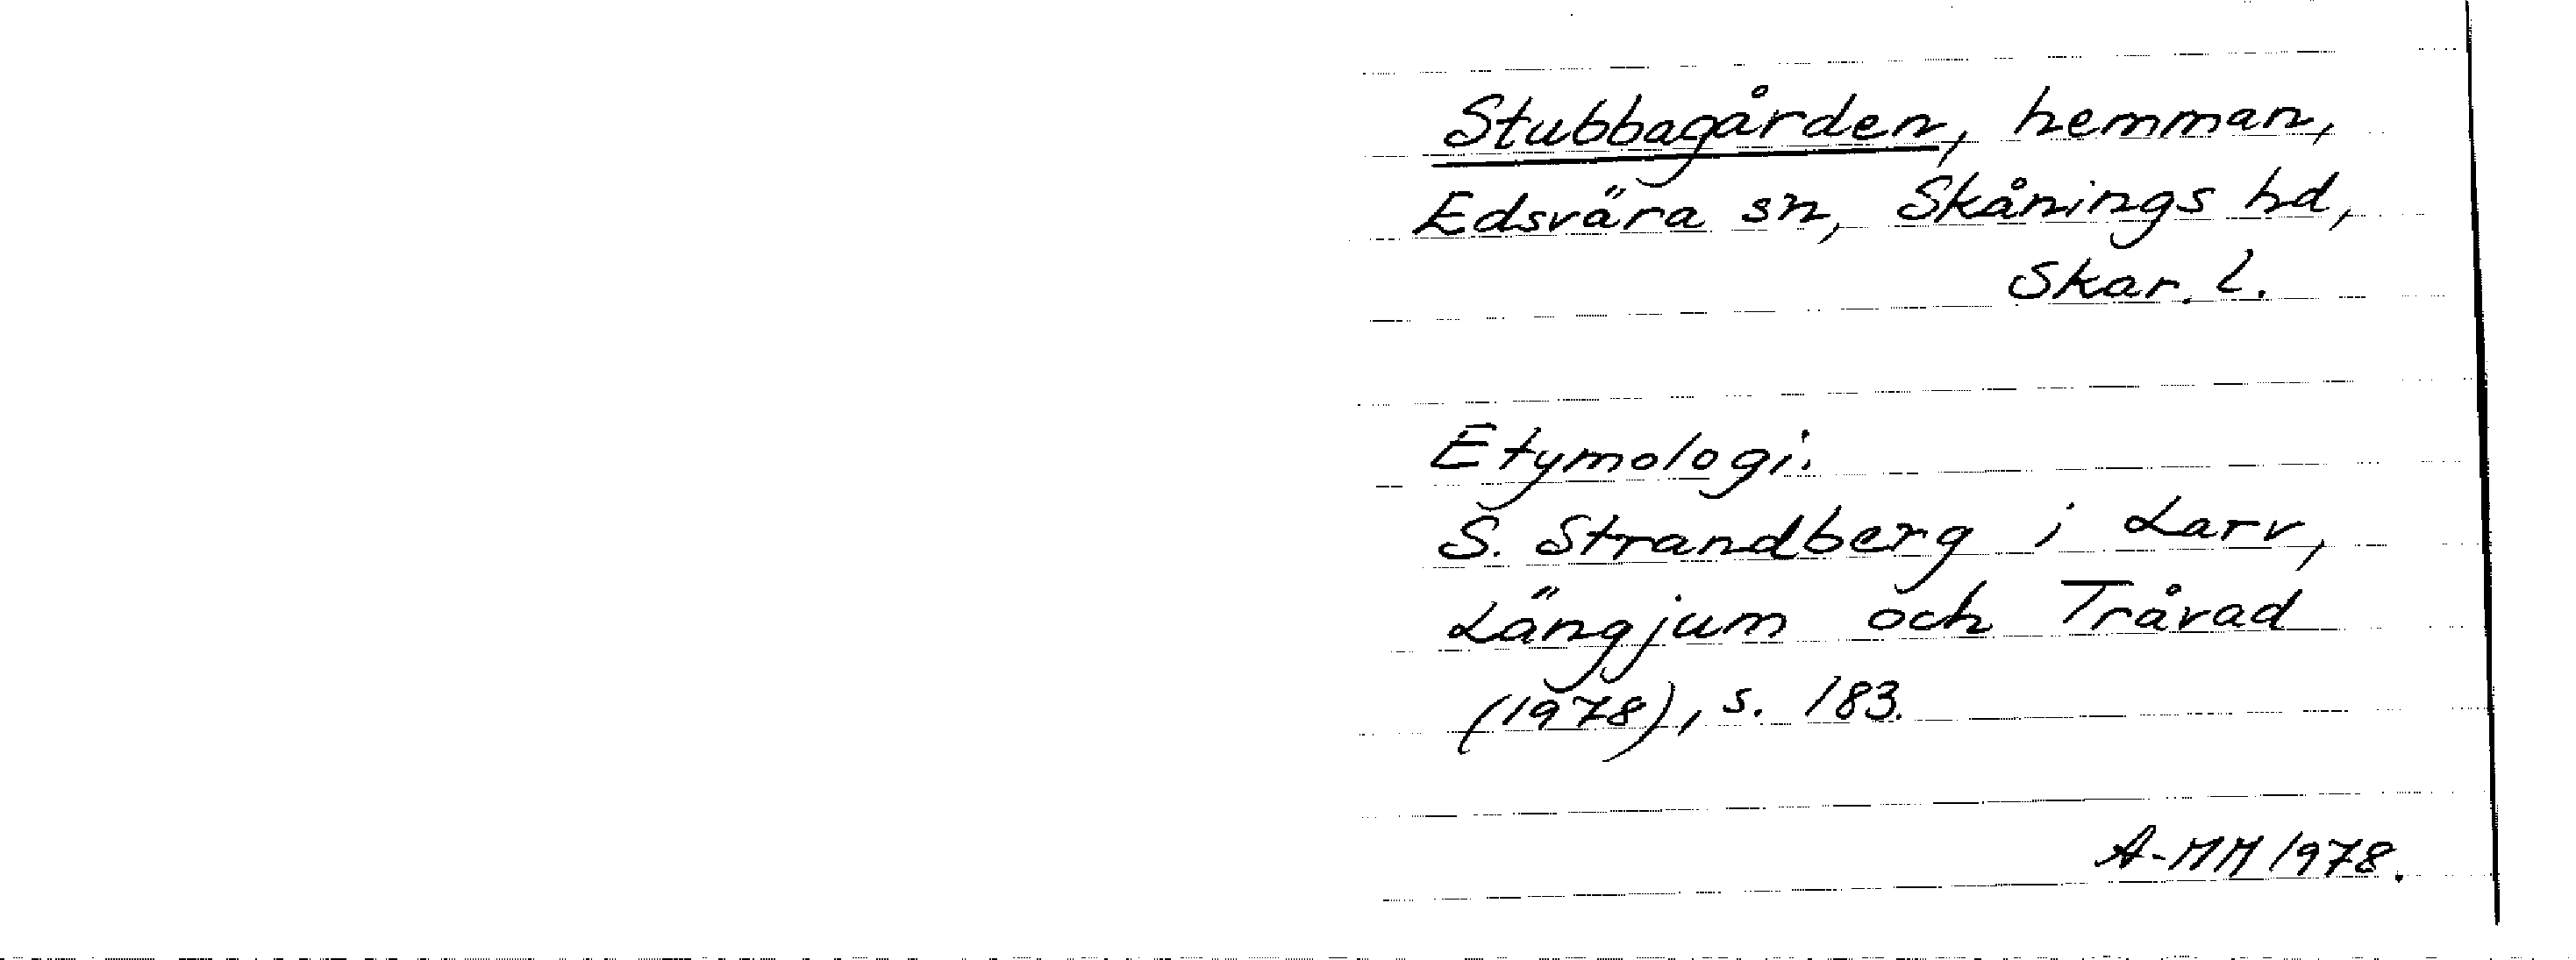 Stubbagården, hemman,
Edsvära sn, Skånings hd,
Skar. l.
Etymologi.
S. Strandberg i Larv,
Längjum och Tråvad
(1978), s. 183.
A-MM 1978.